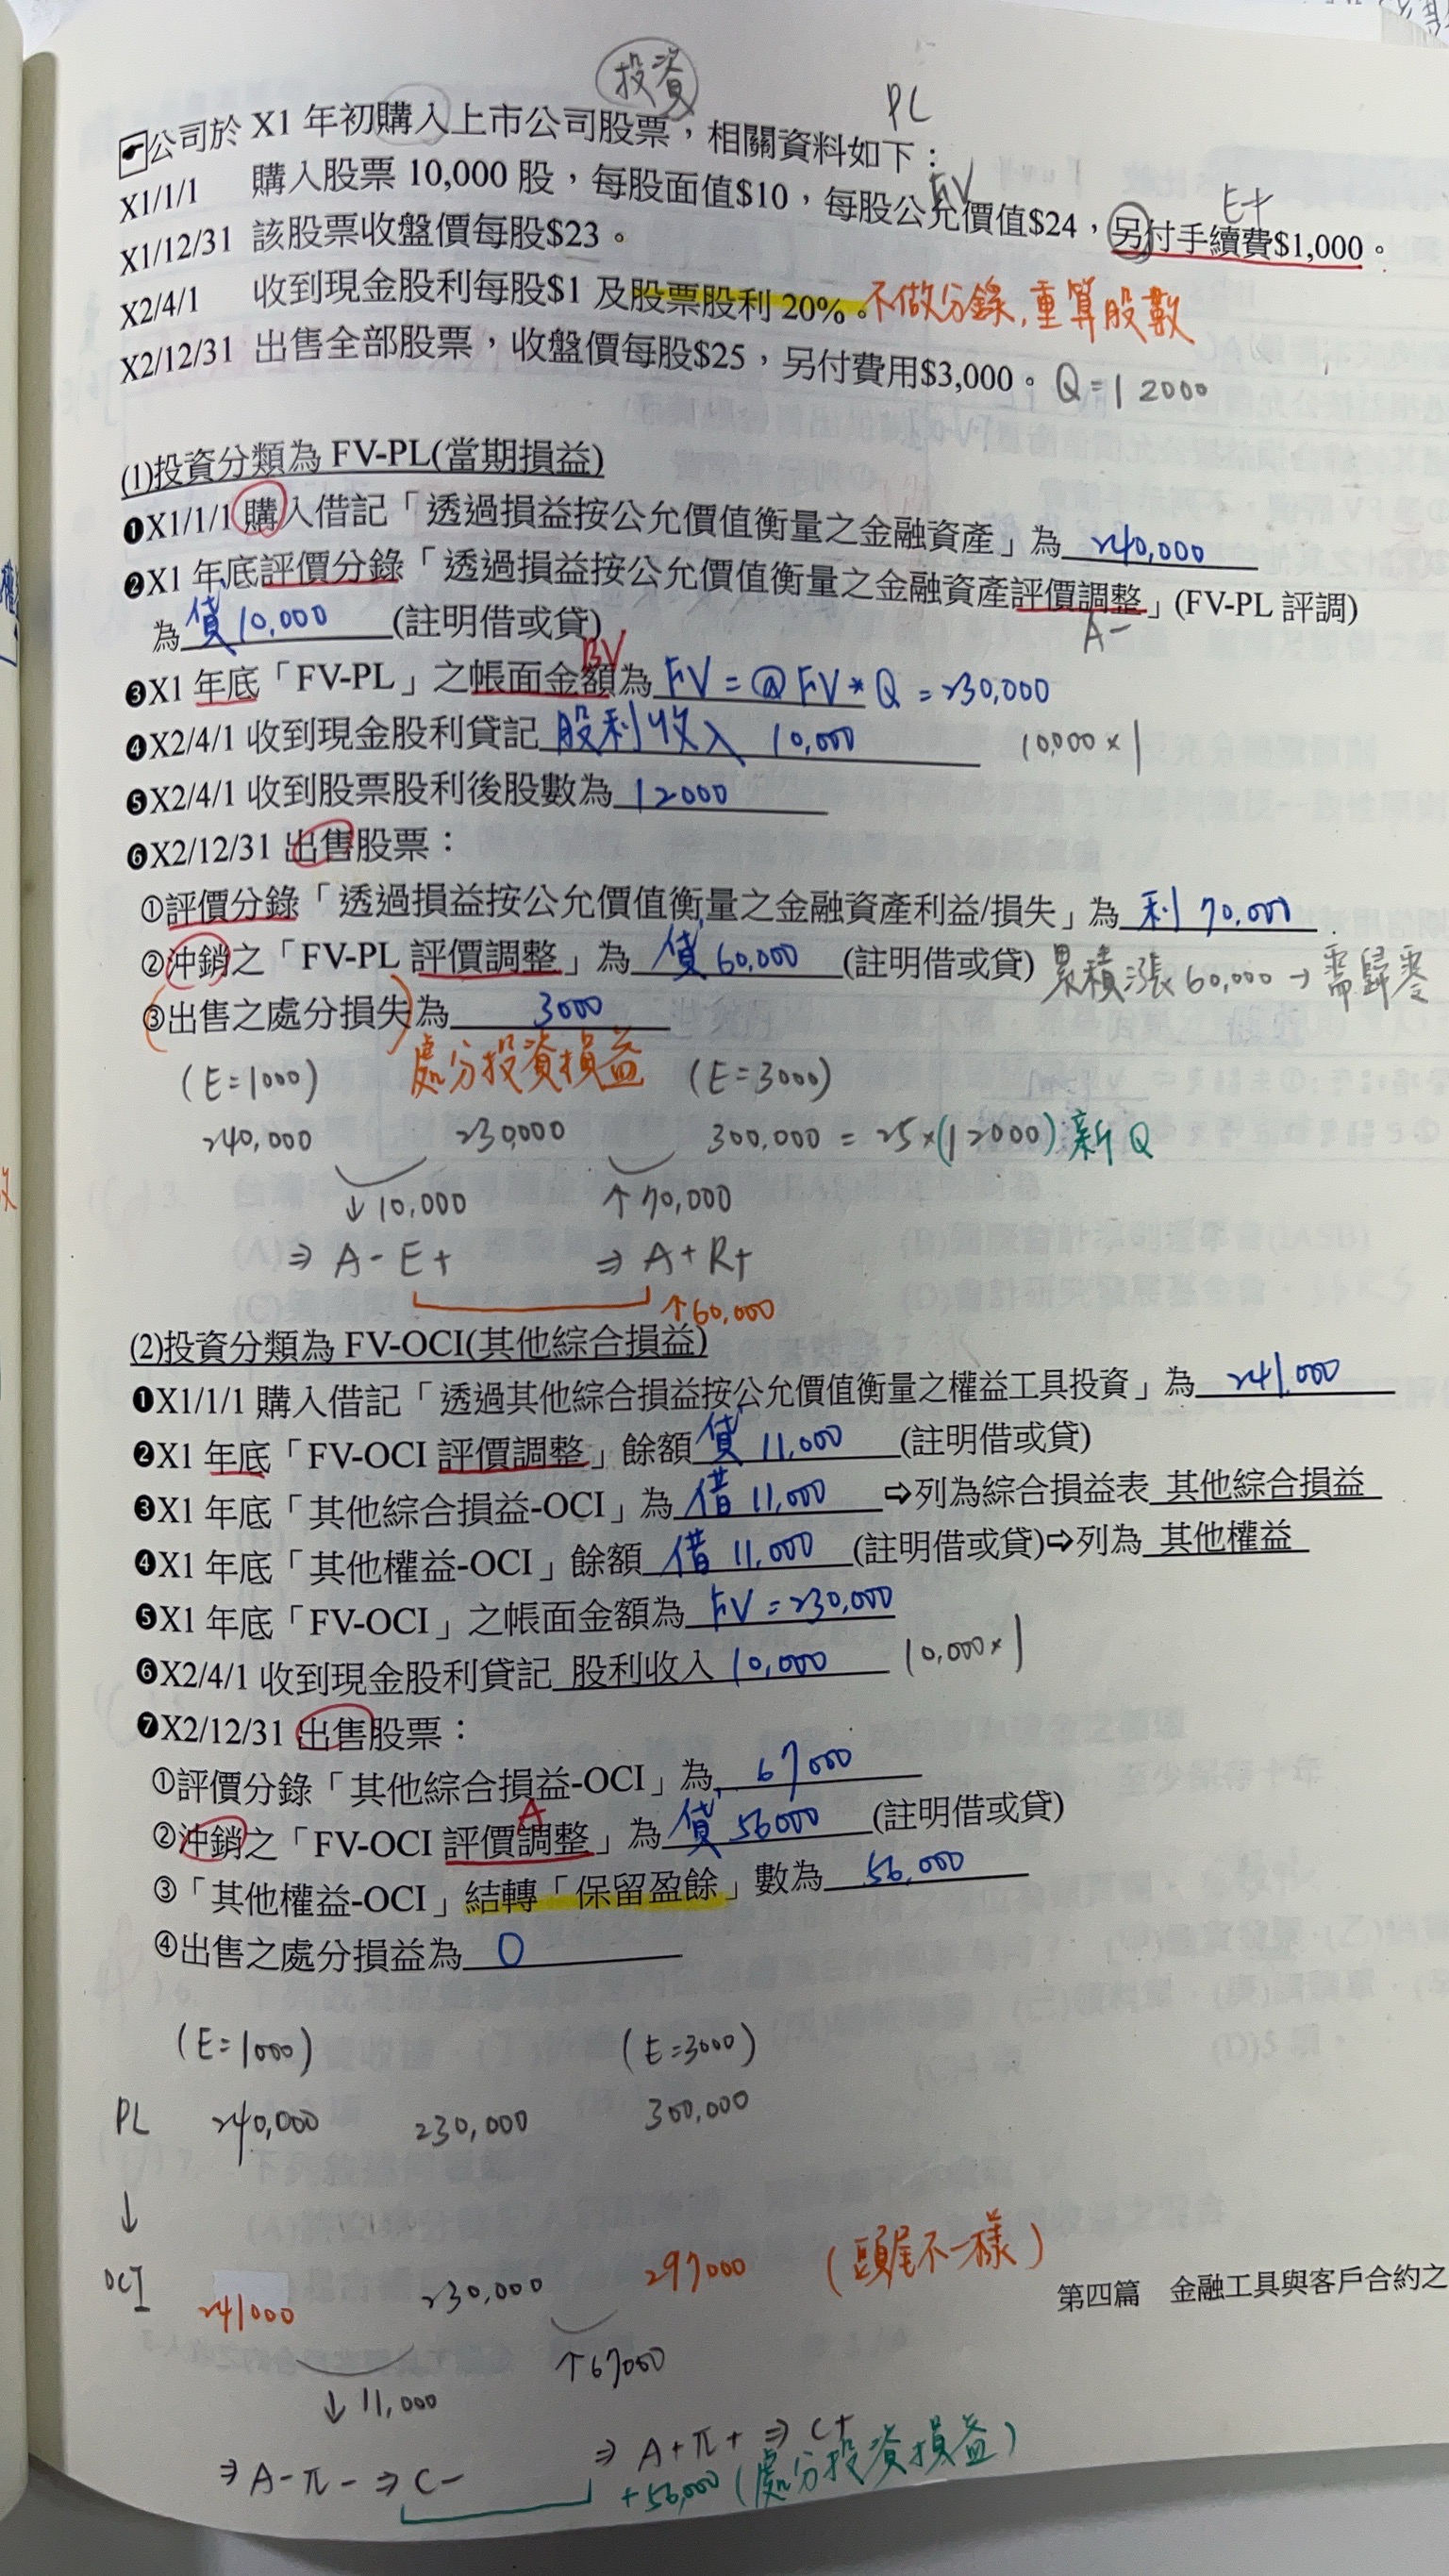 投資
PL
☛公司於 X1 年初購入上市公司股票，相關資料如下：
X1/1/1 購入股票 10,000 股，每股面值$10，每股公允價值$24，另付手續費$1,000。
FV
E+
X1/12/31 該股票收盤價每股$23。
X2/4/1 收到現金股利每股$1 及股票股利 20%。不做分錄,重算股數
X2/12/31 出售全部股票，收盤價每股$25，另付費用$3,000。 Q=12000
(1)投資分類為 FV-PL(當期損益)
❶X1/1/1 購入借記「透過損益按公允價值衡量之金融資產」為 240,000
❷X1 年底評價分錄「透過損益按公允價值衡量之金融資產評價調整」(FV-PL 評調)
為 貸 10,000 (註明借或貸)
A-
BV
❸X1 年底「FV-PL」之帳面金額為 FV = @FV * Q = 230,000
❹X2/4/1 收到現金股利貸記 股利收入 10,000 10,000×1
❺X2/4/1 收到股票股利後股數為 12000
❻X2/12/31 出售股票：
①評價分錄「透過損益按公允價值衡量之金融資產利益/損失」為 利 70,000
②沖銷之「FV-PL 評價調整」為 貸 60,000 (註明借或貸) 累積漲 60,000 → 需歸零
③出售之處分損失為 3000
(E=1000) 處分投資損益 (E=3000)
240,000 230,000 300,000 = 25×(12000):新Q
↓10,000 ↑70,000
⇒ A- E+ ⇒ A+ R+
↑60,000
(2)投資分類為 FV-OCI(其他綜合損益)
❶X1/1/1 購入借記「透過其他綜合損益按公允價值衡量之權益工具投資」為 241,000
❷X1 年底「FV-OCI 評價調整」餘額 貸 11,000 (註明借或貸)
❸X1 年底「其他綜合損益-OCI」為 借 11,000 ⇨列為綜合損益表 其他綜合損益
❹X1 年底「其他權益-OCI」餘額 借 11,000 (註明借或貸)⇨列為 其他權益
❺X1 年底「FV-OCI」之帳面金額為 FV = 230,000
❻X2/4/1 收到現金股利貸記 股利收入 10,000 10,000×1
❼X2/12/31 出售股票：
①評價分錄「其他綜合損益-OCI」為 67000
A
②沖銷之「FV-OCI 評價調整」為 貸 56000 (註明借或貸)
③「其他權益-OCI」結轉「保留盈餘」數為 56,000
④出售之處分損益為 0
(E=1000) (E=3000)
PL 240,000 230,000 300,000
↓
OCI 241000 230,000 297000 (頭尾不一樣)
第四篇 金融工具與客戶合約之
↓11,000 ↑67000
⇒ A- π- ⇒ C- ⇒ A+ π+ ⇒ C+
+56,000 (處分投資損益)